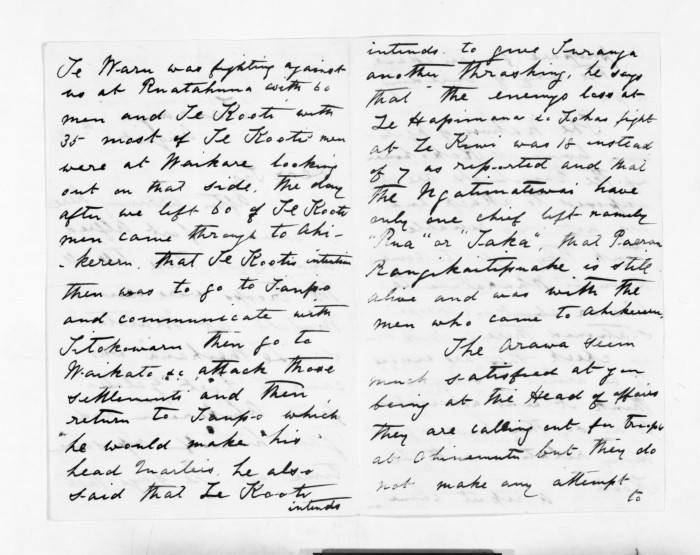 Te Waru was fighting against
us at Ruatahuna with 60
men and Te Kooti with
35 most of Te Kootis men
were at Waikare looking
out on that side. The day
after we left 60 of Te Kootis
men came through to Ahi-
-kereru. that Te Kootis intention
then was to go to Taupo
and communicate with
Titokowaru then go to
Waikato &c attack those
settlements and then
return to Taupo which
"he would make "his
head quarters. he also
said that Te Kooti
intends
intends to give Turanga
another thrashing, he says
that the enemys loss at
Te Hapimana & Tokas fight
at Te Kiwi was 18 instead
of 7 as reported and that
the Ngatimatewai have
only one chief left namely
"Rua" or "Taka", that Paerau
Rangikaitipuake is still
alive and was with the
men who came to Ahikereru.
The Arawa seem
much satisfied at you
being at the Head of affairs
they are calling out for troops
at Ohinemutu but they do
not make any attempt
to